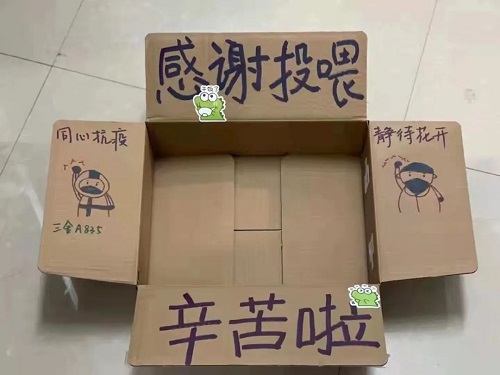 感谢投喂
干饭了
同心抗疫
三舍A835
静待花开
辛苦啦